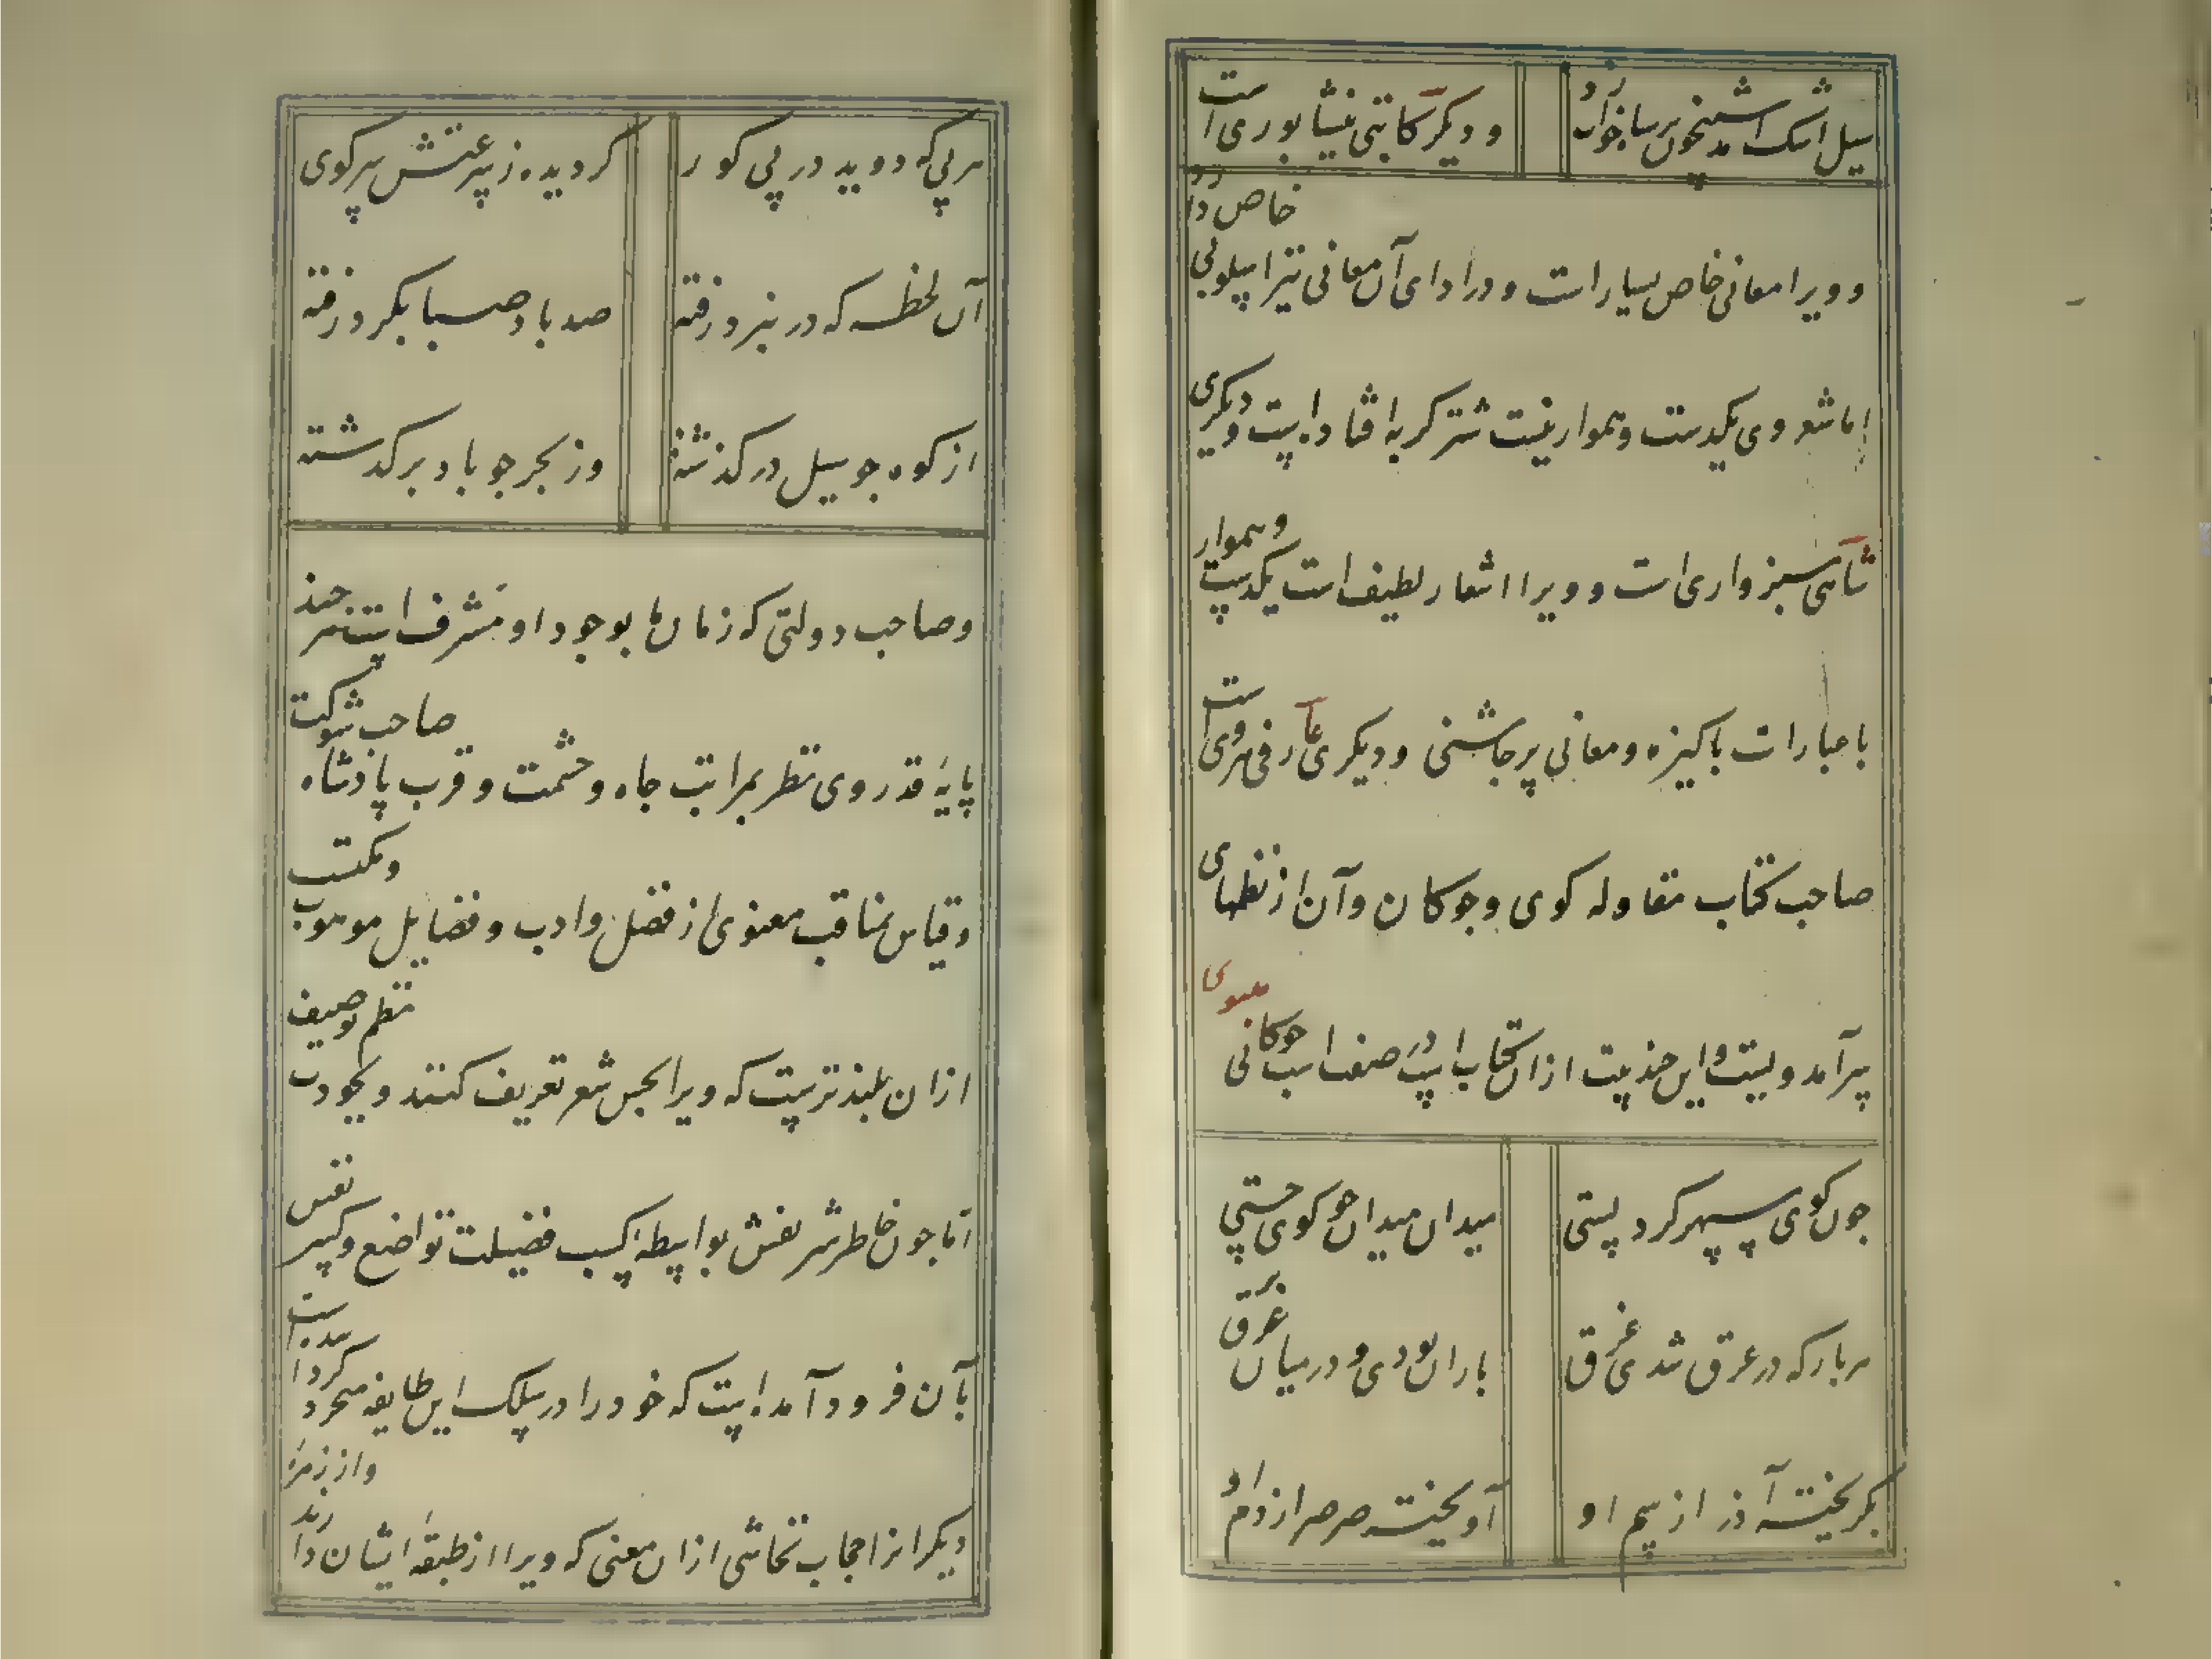 سیل اشک آمد شبیخون بر سر خواب آورد
و دیگر کاتبی نیشابوری است
و ویرا معانی خاص بسیار است و در ادای آن معانی نیز اسلوبی خاص دارد
اما شعر وی یکدست و هموار نیست شتر گربه افتاده است و دیگری
شاهی سبزواری است و ویرا اشعار لطیف است یکدست و هموار
با عبارات پاکیزه و معانی پرچاشنی و دیگری عارفی هروی است
صاحب کتاب مقاوله کوی و جوکان و آن از نظمهای
پر آمد و لیست و این جند بیت ازان کتاب است در صفت اسب جوکانی
جون کوی سپهر کرد پستی
میدان میدان جو کوی جستی
هر بار که در عرق شدی غرق
باران بودی و در میان برق
بکریخته آذر از سم او
آویخته صرصر از دم او
هر پی که دوید در پی کور
کردیده ز پیر عتش سر کوی
آن لحظه که در نبرد رفته
صد باد صبا بکرد رفته
از کوه جو سیل در کذشته
وز بحر جو باد بر کذشته
و صاحب دولتی که زمان ما بوجود او مشرف است هر جند
پایهٔ قدر وی نظر بمراتب جاه و حشمت و قرب پادشاه صاحب شوکت
و قیاس بمناقب معنوی از فضل و ادب و فضایل موهوب و مکتسب
ازان بلندتر است که ویرا بحسن شعر تعریف کنند و بجودت نظم توصیف
اما جون خاطر شریفش بواسطهٔ کسب فضیلت تواضع و کسر نفس
بآن فرود آمده است که خود را در سلک این طایفه منخرط کردانیده است
دیکرانرا حجاب تحاشی ازان معنی که ویرا از طبقهٔ ایشان دارند و از زمرهٔ